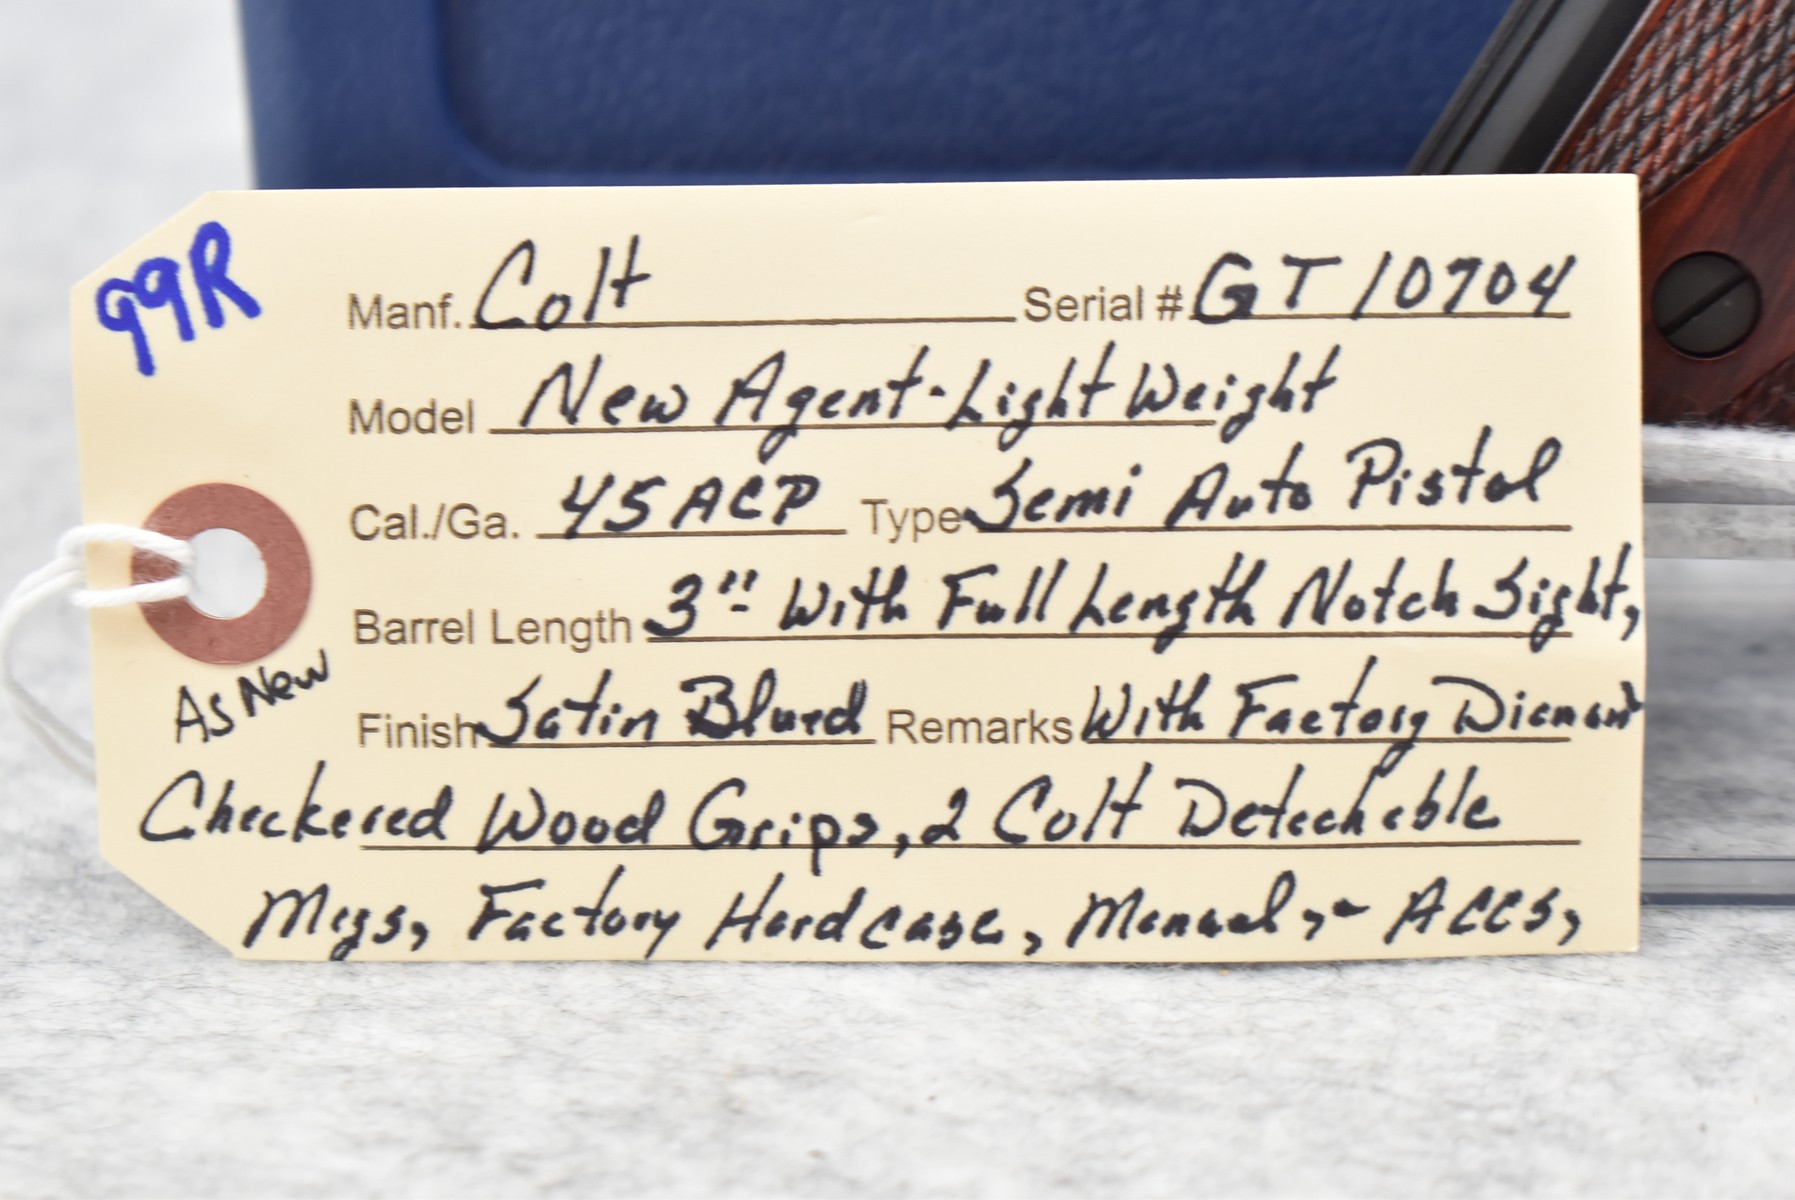 99R
Manf. Colt Serial # GT10704
Model New Agent-Light Weight
Cal./Ga. 45ACP Type Semi Auto Pistol
Barrel Length 3" With Full Length Notch Sight,
As New
Finish Satin Blued Remarks With Factory Diamond
Checkered Wood Grips, 2 Colt Detecheble
Megs, Factory Hardcase, Manual, & ACCS,